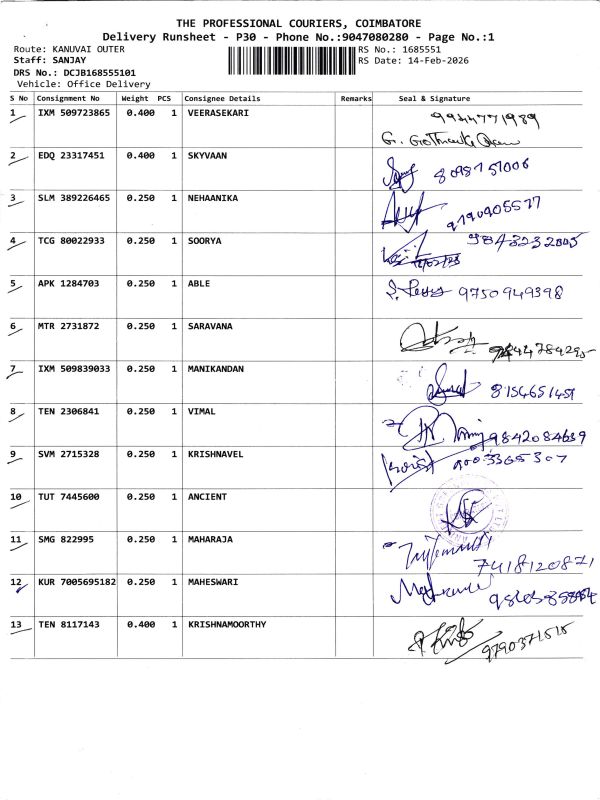 THE PROFESSIONAL COURIERS, COIMBATORE
Delivery Runsheet - P30 - Phone No.:9047080280 - Page No.:1
Route: KANUVAI OUTER RS No.: 1685551
Staff: SANJAY RS Date: 14-Feb-2026
DRS No.: DCJB168555101
Vehicle: Office Delivery
S No Consignment No Weight PCS Consignee Details Remarks Seal & Signature
1 IXM 509723865 0.400 1 VEERASEKARI 9944771989
2 EDQ 23317451 0.400 1 SKYVAAN 8098751006
3 SLM 389226465 0.250 1 NEHAANIKA 9790905577
4 TCG 80022933 0.250 1 SOORYA
5 APK 1284703 0.250 1 ABLE 9750949398
6 MTR 2731872 0.250 1 SARAVANA
7 IXM 509839033 0.250 1 MANIKANDAN 8154651451
8 TEN 2306841 0.250 1 VIMAL 9842084639
9 SVM 2715328 0.250 1 KRISHNAVEL 9003365307
10 TUT 7445600 0.250 1 ANCIENT
11 SMG 822995 0.250 1 MAHARAJA 7418120871
12 KUR 7005695182 0.250 1 MAHESWARI
13 TEN 8117143 0.400 1 KRISHNAMOORTHY 9790371515